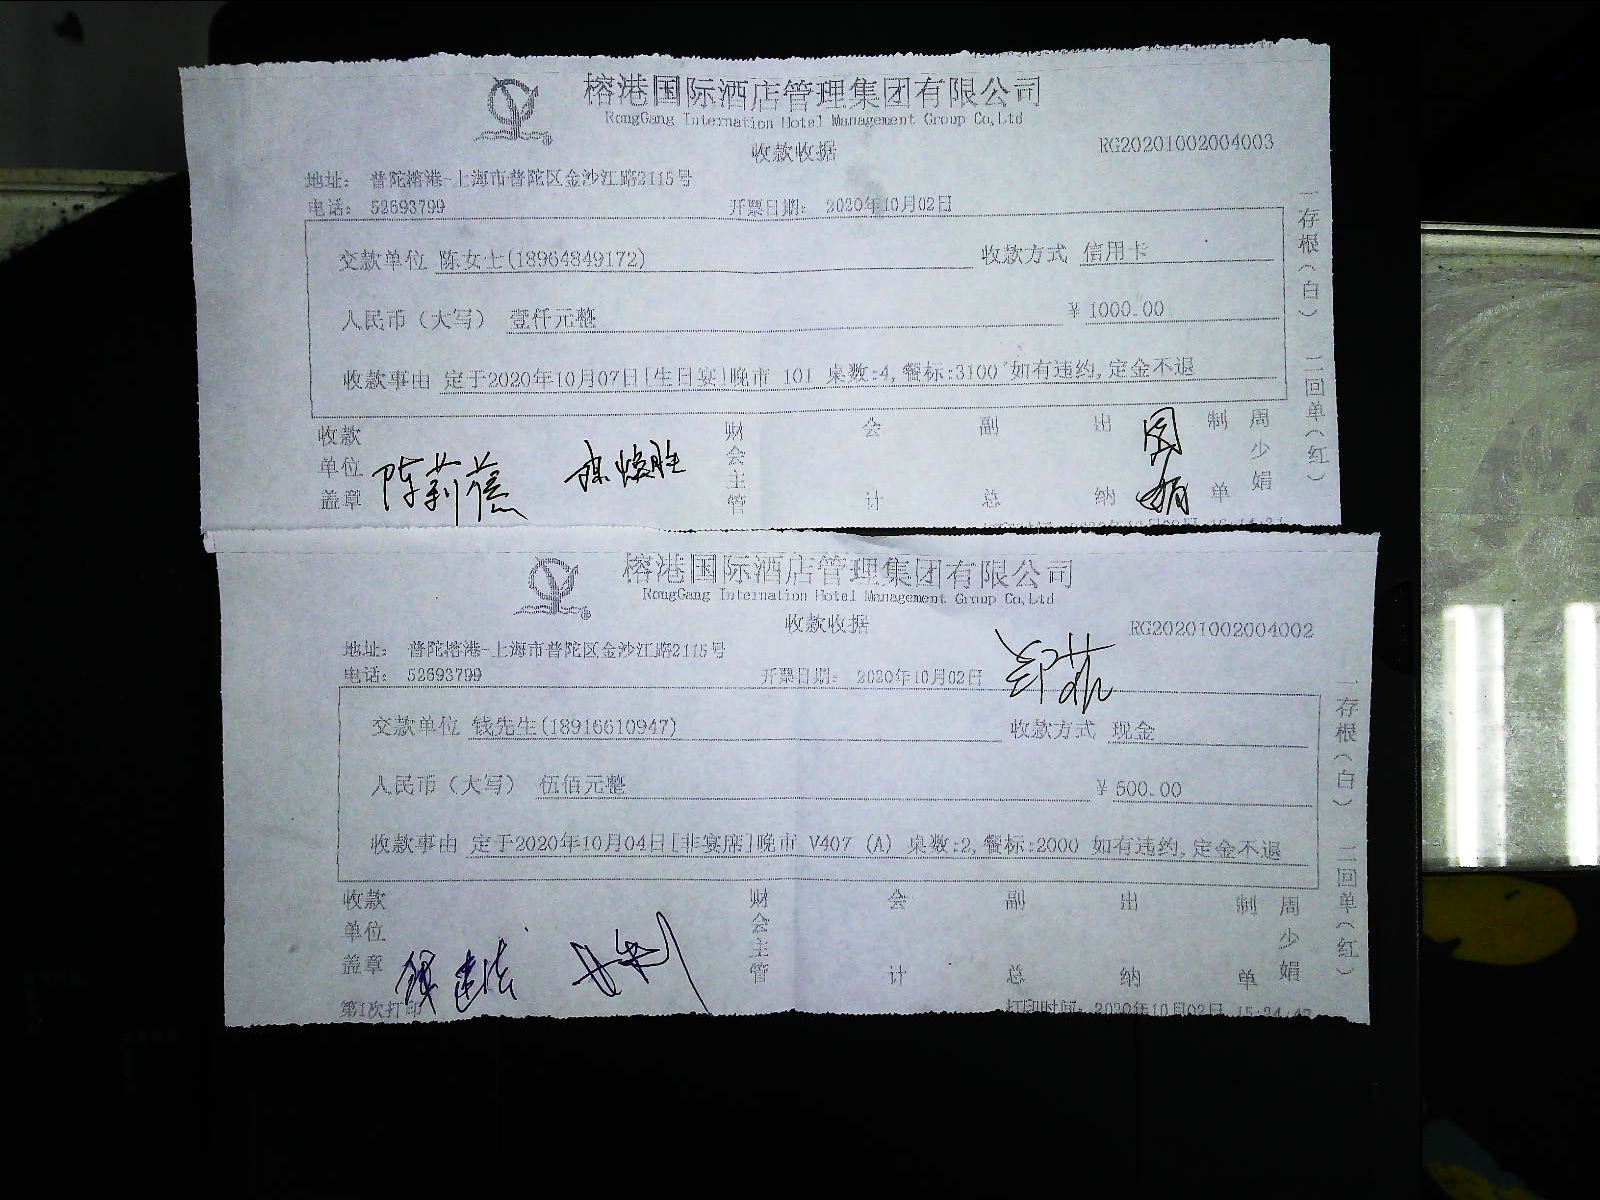 榕港国际酒店管理集团有限公司
RongGang Internation Hotel Management Group Co,Ltd
收款收据
RG20201002004003
地址： 普陀榕港-上海市普陀区金沙江路2115号
电话： 52693799 开票日期： 2020年10月02日
交款单位 陈女士(18964849172) 收款方式 信用卡
人民币（大写） 壹仟元整 ¥ 1000.00
收款事由 定于2020年10月07日[生日宴]晚市 101 桌数:4,餐标:3100 如有违约,定金不退
收款单位盖章 财会主管 会计 副总 出纳 制单 周少娟
陈莉蓓
存根（白） 二回单（红）
榕港国际酒店管理集团有限公司
RongGang Internation Hotel Management Group Co,Ltd
收款收据
RG20201002004002
郑菲
地址： 普陀榕港-上海市普陀区金沙江路2115号
电话： 52693799 开票日期： 2020年10月02日
交款单位 钱先生(18916610947) 收款方式 现金
人民币（大写） 伍佰元整 ¥ 500.00
收款事由 定于2020年10月04日[非宴席]晚市 V407 (A) 桌数:2,餐标:2000 如有违约,定金不退
收款单位盖章 财会主管 会计 副总 出纳 制单 周少娟
存根（白） 二回单（红）
第1次打印 打印时间: 2020年10月02日 15:24:47